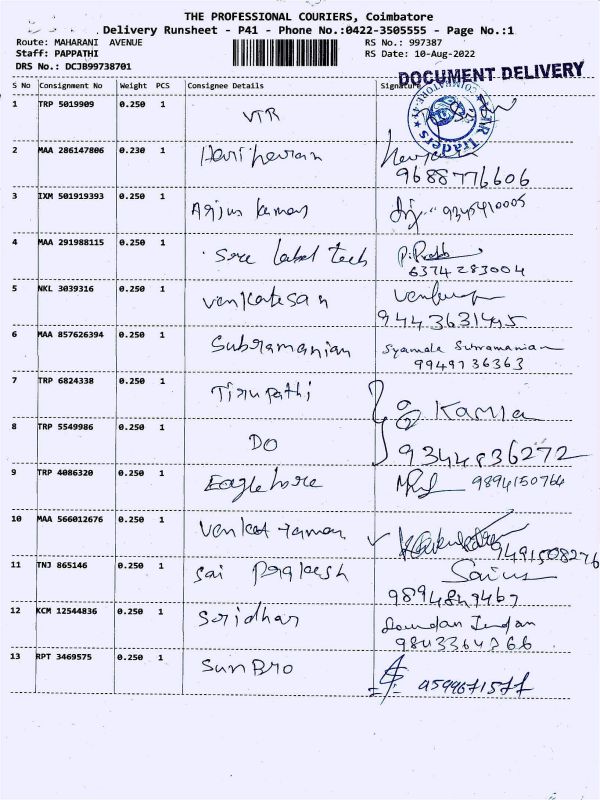 THE PROFESSIONAL COURIERS, Coimbatore
Delivery Runsheet - P41 - Phone No.:0422-3505555 - Page No.:1
Route: MAHARANI AVENUE RS No.: 997387
Staff: PAPPATHI RS Date: 10-Aug-2022
DRS No.: DCJB99738701
DOCUMENT DELIVERY
S No Consignment No Weight PCS Consignee Details Signature
1 TRP 5019909 0.250 1 VTR
Traders
2 MAA 286147806 0.230 1 Hariharan
9688776606
3 IXM 501919393 0.250 1 Arjun kumar 9345410005
4 MAA 291988115 0.250 1 Sree label tech
6374283004
5 NKL 3039316 0.250 1 venkatesan
6 MAA 857626394 0.250 1 Subramanian Syamala Subramanian
9949736363
7 TRP 6824338 0.250 1 Tirupathi
Kamla
8 TRP 5549986 0.250 1 DO 9344836272
9 TRP 4086320 0.250 1 9894150764
10 MAA 566012676 0.250 1 Venkat raman
9491508276
11 TNJ 865146 0.250 1 Sai Prakash
12 KCM 12544836 0.250 1 Sridhar
13 RPT 3469575 0.250 1 Sun Bro